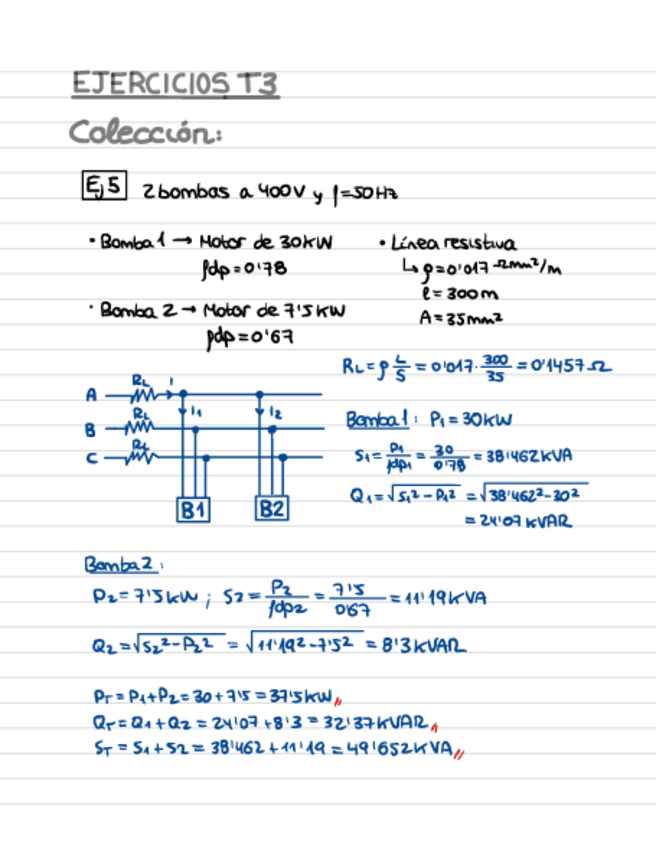 EJERCICIOS T3
Colección:
Ej 5 2 bombas a 400V y f=50Hz
• Bomba 1 → Motor de 30kW
fdp=0'78
• Bomba 2 → Motor de 7'5kW
fdp=0'67
• Línea resistiva
↳ ρ=0'017 Ωmm²/m
l=300m
A=35mm²
RL=ρ L/S = 0'017 · 300/35 = 0'1457Ω
RL I
A
RL I1 I2
B
RL
C
B1 B2
Bomba 1: P1=30kW
S1= P1/fdp1 = 30/0'78 = 38'462KVA
Q1=√S1²-P1² = √38'462²-30²
= 24'07 KVAR
Bomba 2:
P2=7'5kW ; S2= P2/fdp2 = 7'5/0'67 = 11'19KVA
Q2=√S2²-P2² = √11'19²-7'5² = 8'3KVAR
PT=P1+P2=30+7'5=37'5kW//
QT=Q1+Q2=24'07+8'3=32'37KVAR//
ST=S1+S2=38'462+11'19=49'652KVA//